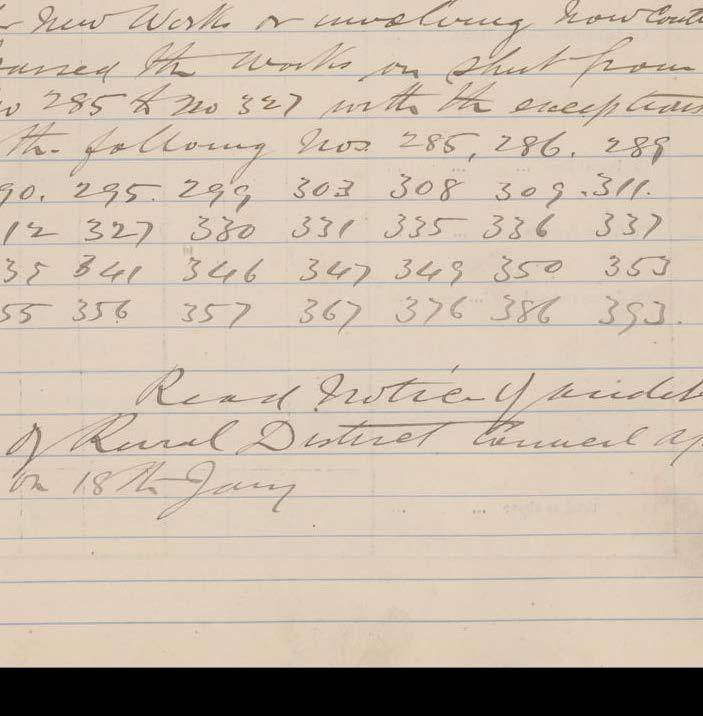 New Works or involving new
the Works on sheet from
285 to No 327 with the exceptions
following Nos. 285, 286. 289
90. 295. 299 303 308 309. 311.
12 327 330 331 335 336 337
341 346 347 349 350 353
55 356 357 367 376 386 393.
Read Notice of
of Rural District Council
on 18th Jany